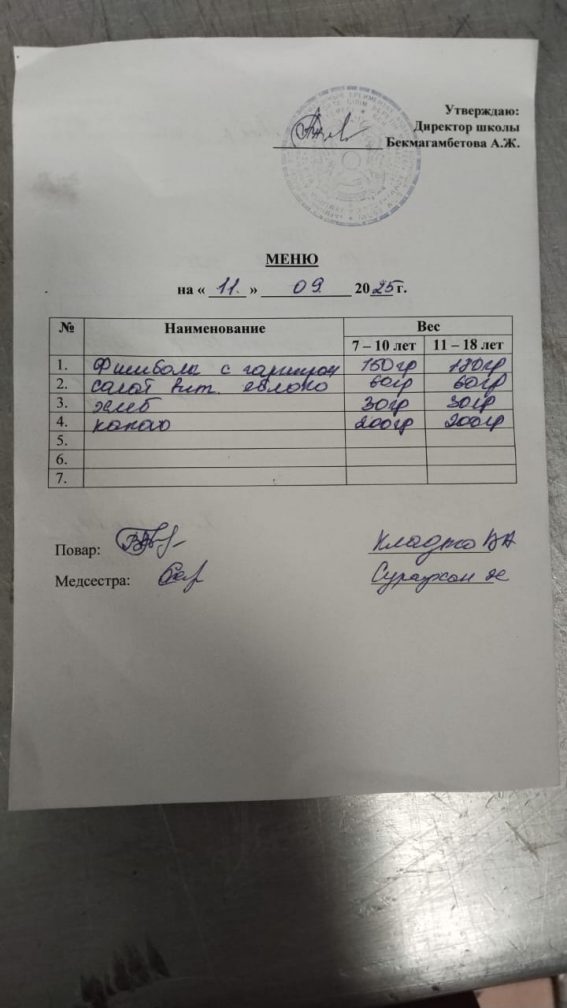 Утверждаю:
Директор школы
Бекмагамбетова А.Ж.
МЕНЮ
на « 11. » 09 2025 г.
№ Наименование Вес
7 – 10 лет 11 – 18 лет
1. Фишболы с гарниром 150гр 180гр
2. салат вит. яблоко 60гр 60гр
3. хлеб 30гр 30гр
4. какао 200гр 200гр
5.
6.
7.
Повар:
Медсестра: